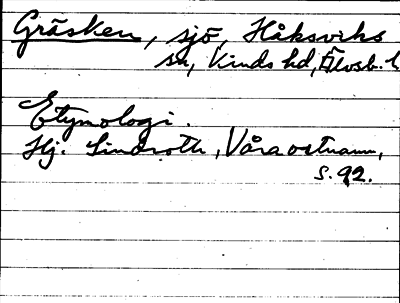 Gräsken, sjö, Håksviks
sn, Kinds hd, Älvsb. l
Etymologi.
Hj. Lindroth, Våra ortnamn,
s. 92.